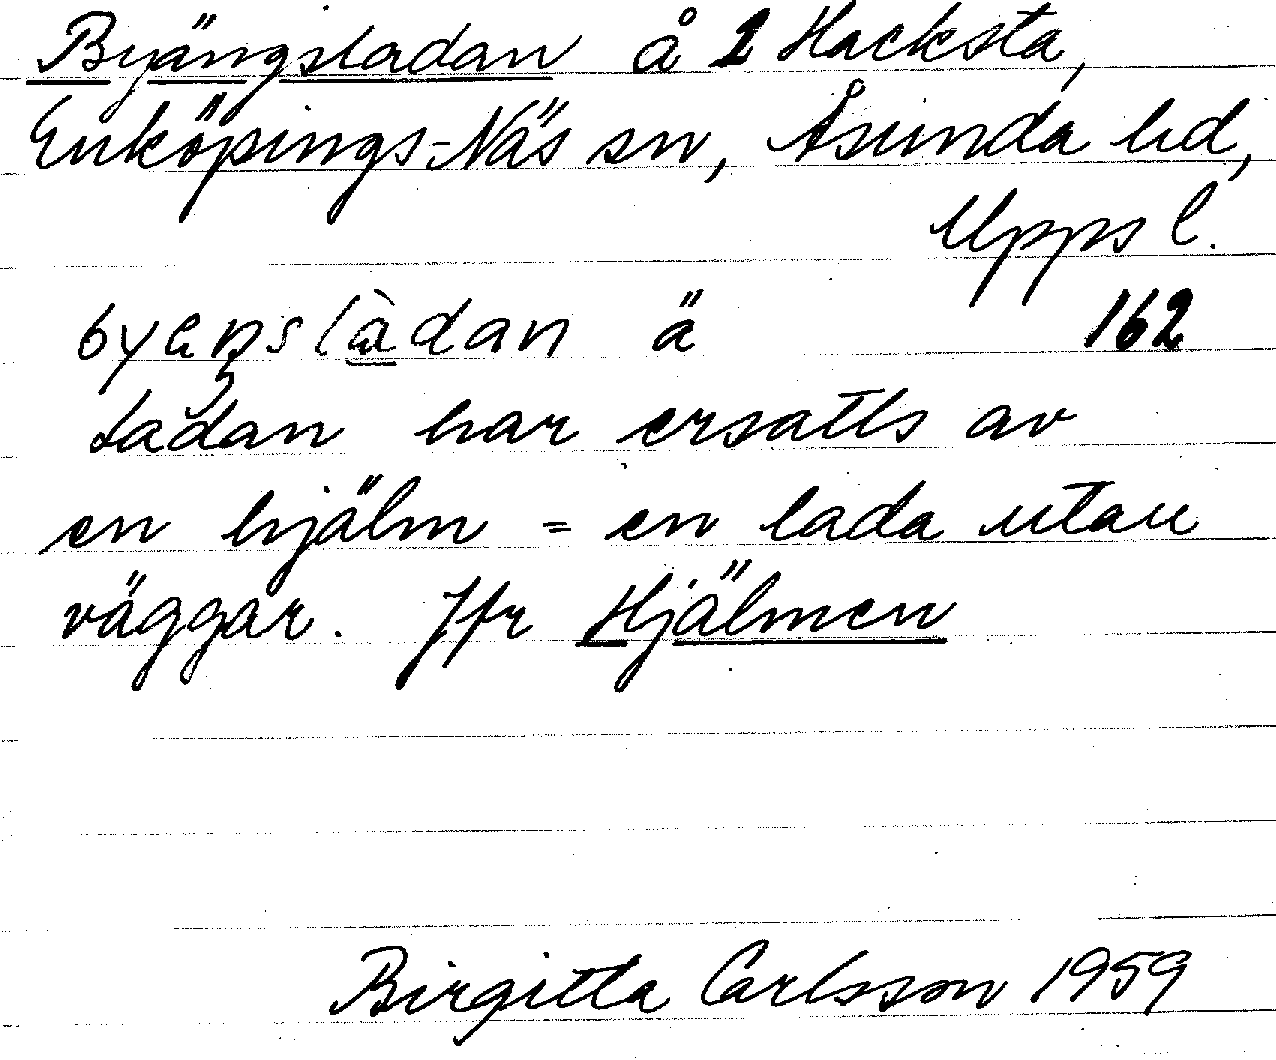 Byängsladan å 1 Hacksta,
Enköpings-Näs sn, Åsunda hd,
Upps l.
byeŋslàdan ä 162
Ladan har ersatts av
en hjälm = en lada utan
väggar. Jfr Hjälmen
Birgitta Carlsson 1959